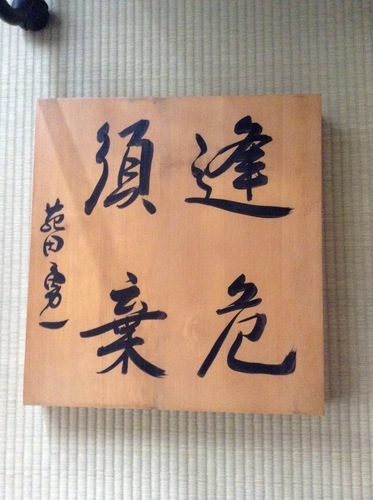 逢危
須棄
苑田勇一